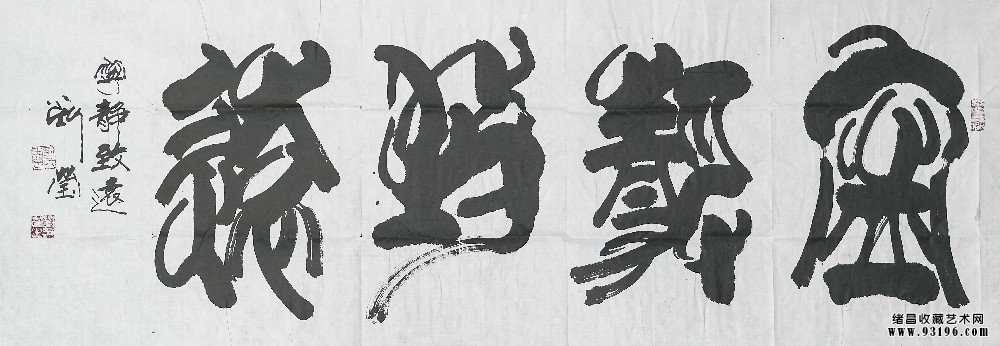 寧靜致遠
寧靜致遠
刘瑩
绪昌收藏艺术网
www.93196.com